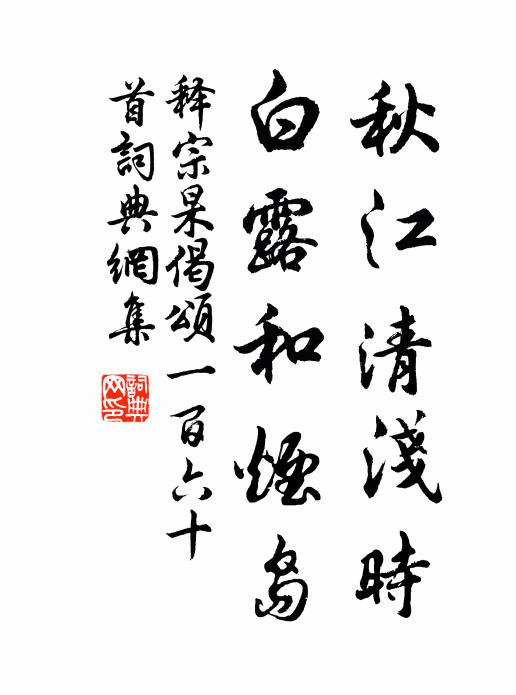 秋江清淺時
白露和煙島
释宗杲偈頌一百六十
首詞典網集
詞典網印